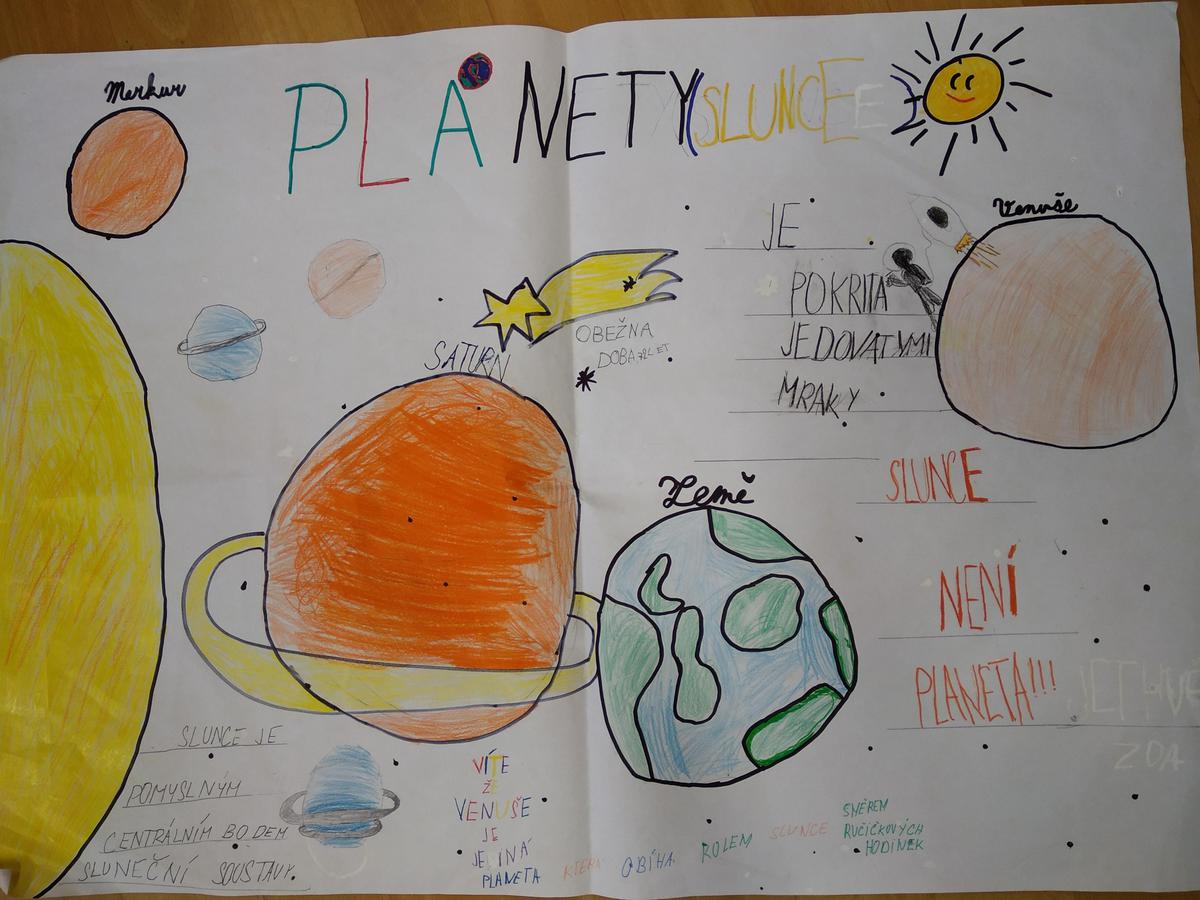 Merkur
PLANETY (SLUNCE)
Venuše
JE
POKRITA
JEDOVATYMI
MRAKY
OBEŽNA
DOBA
SATURN
SLUNCE
NENÍ
PLANETA!!!
Země
SLUNCE JE
POMYSLNÝM
CENTRÁLNÍM BODEM
SLUNEČNÍ SOUSTAVY.
VÍTE
ŽE
VENUŠE
JE
JEDINÁ
PLANETA KTERÁ OBÍHA KOLEM SLUNCE
SMĚREM
RUČIČKOVÝCH
HODINEK